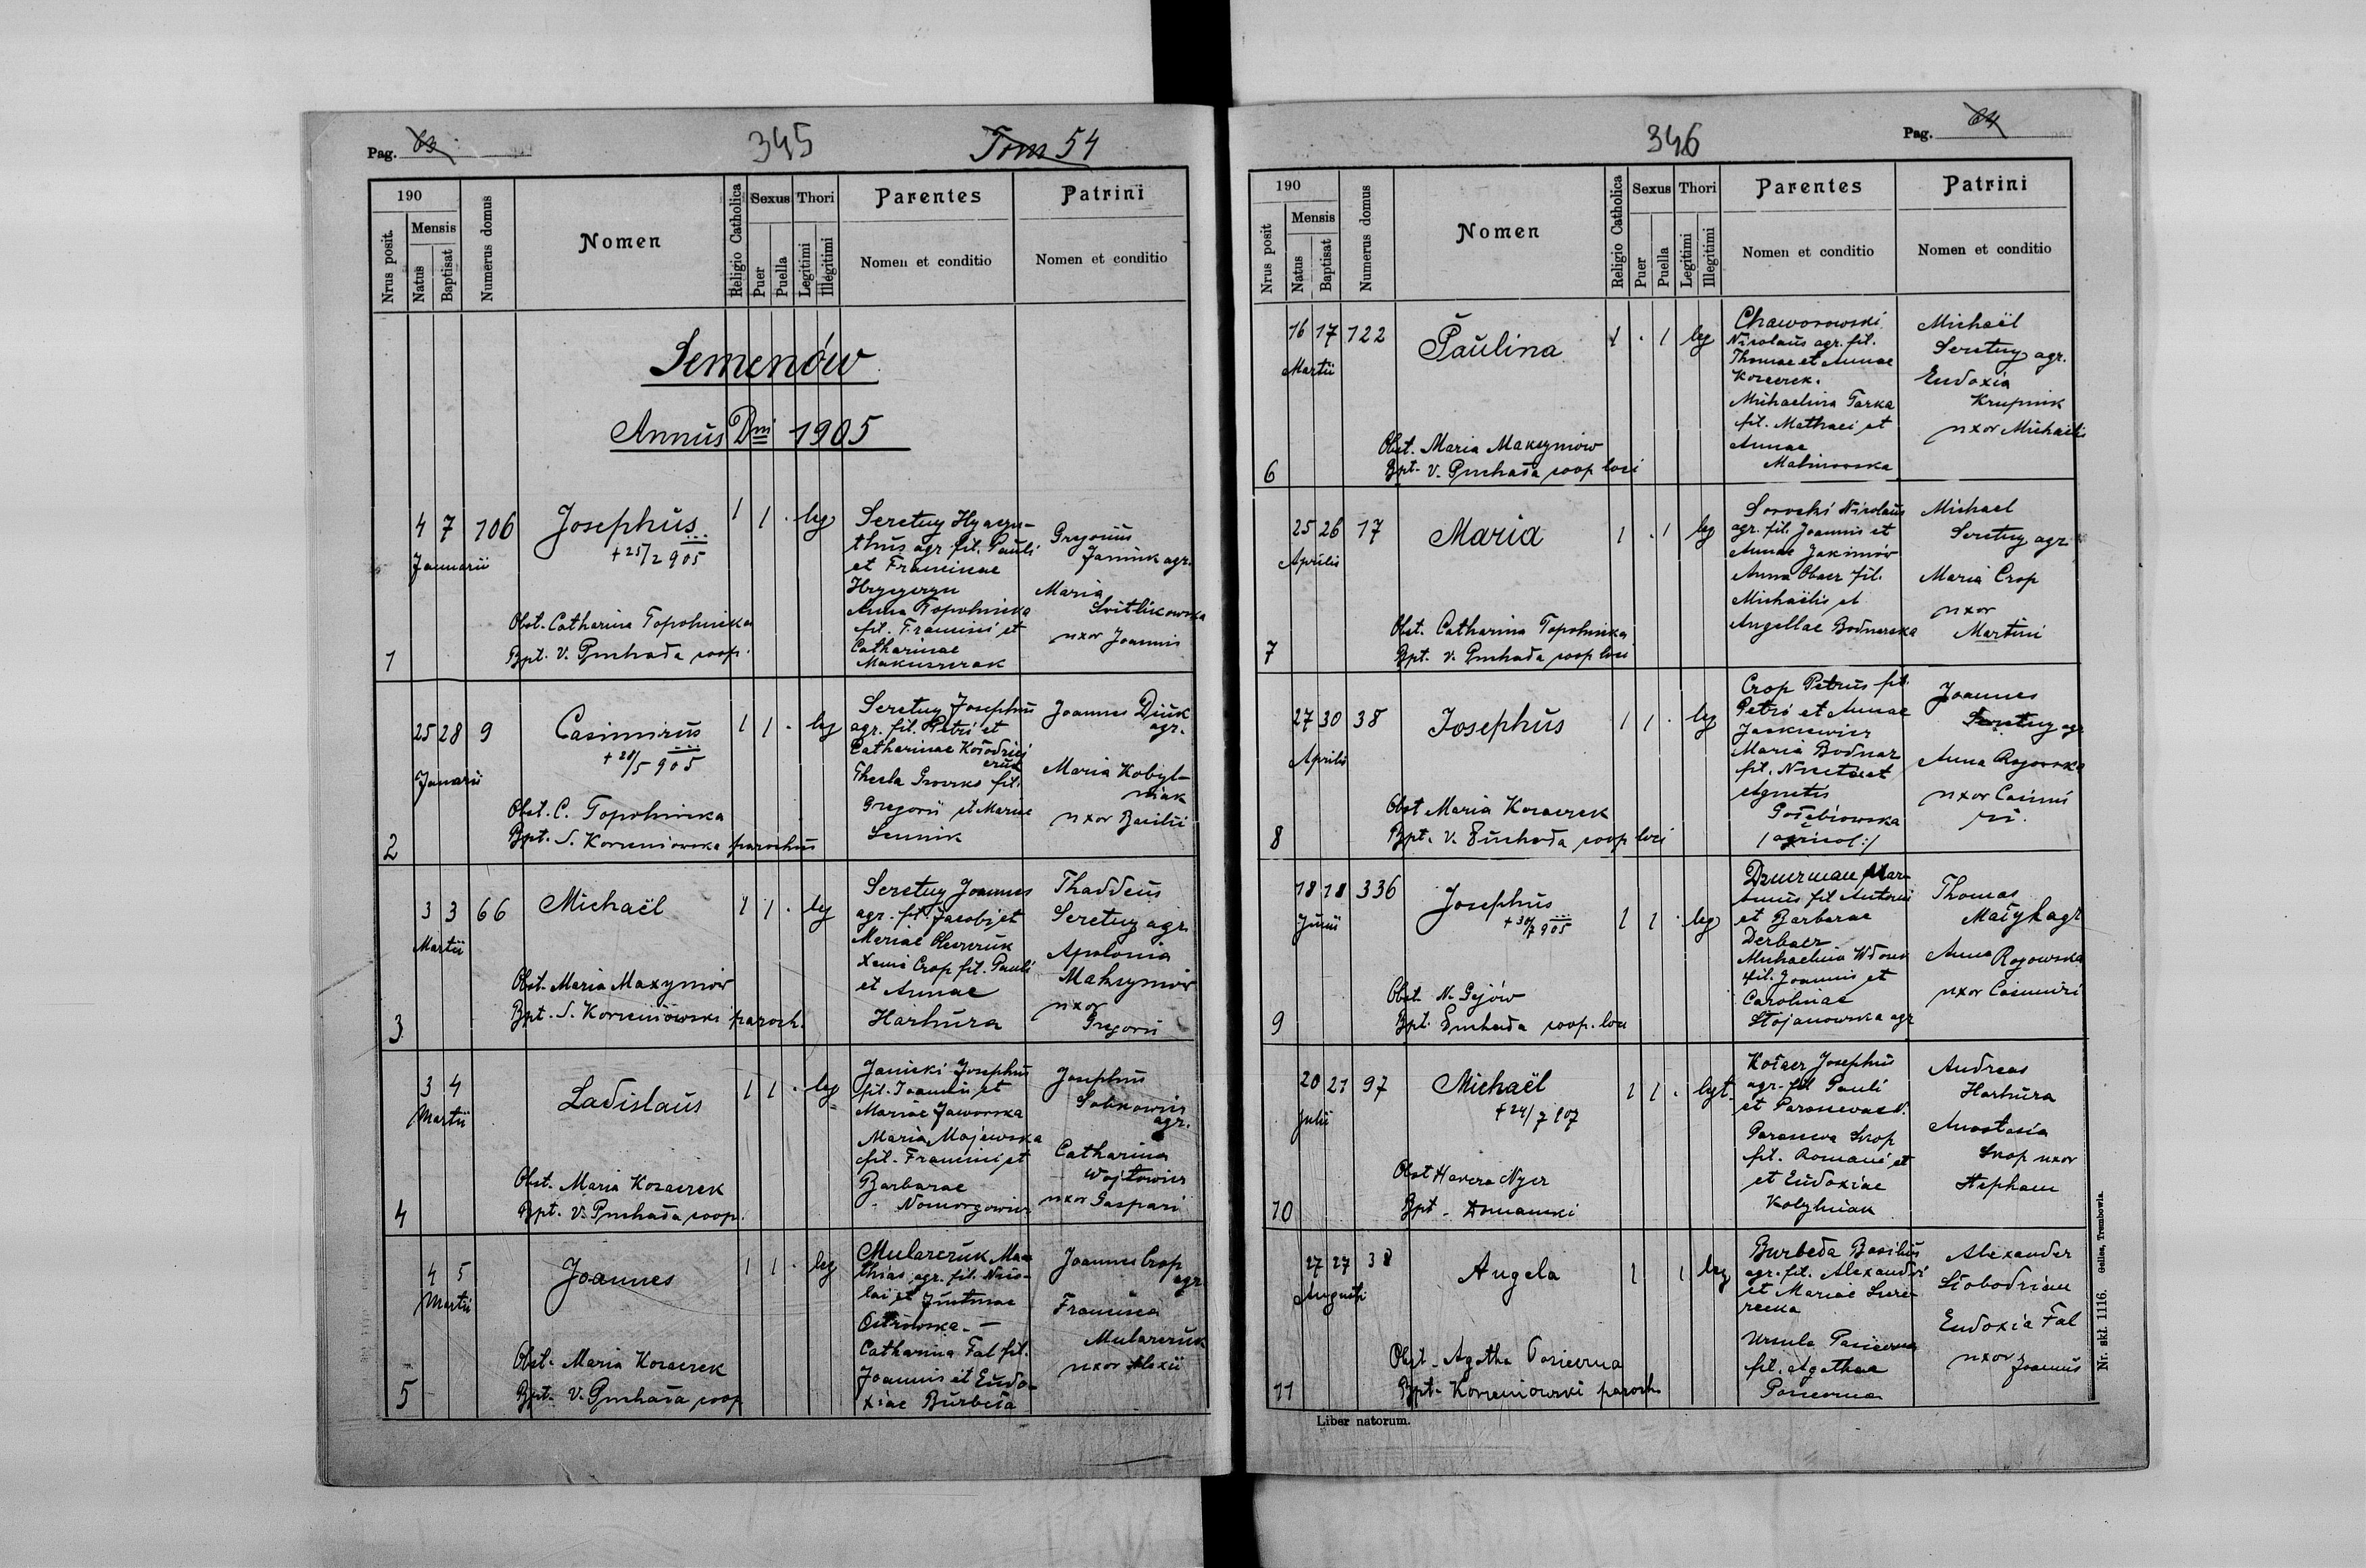 Pag. 63
345
Tom 54
190
Nrus posit.
Mensis
Natus
Baptisat
Numerus domus
Nomen
Religio Catholica
Sexus
Puer
Puella
Thori
Legitimi
Illegitimi
Parentes
Nomen et conditio
Patrini
Nomen et conditio
Semenów
Annus Dni 1905
1
4 7 106
Januarii
Josephus
+ 25/2 905
Obst. Catharina Topolnicka
Bpt. V. Puchała coop.
1 1 . leg
Seretny Hyacyn-
thus agr. fil. Pauli
et Franciscae
Hryczczyn
Anna Topolnicka
fil. Francisci et
Catharinae
Gregorius
Janiuk agr.
Maria
Svitlikowska
uxor Joannis
2
25 28 9
Januarii
Casimirus
+ 28/5 905
Obst. C. Topolnicka
Bpt. S. Korzeniowski parochus
1 1 . leg
Seretny Josephus
agr. fil. Petri et
Catharinae
Thecla fil.
Gregorii et Mariae
Sennik
Joannes Diuk
agr.
Maria Kobyl-
niak
uxor Basilii
3
3 3 66
Martii
Michaël
Obst. Maria Maxymów
Bpt. S. Korzeniowski paroch.
1 1 . leg
Seretny Joannes
agr. fil. Jacobi et
Mariae
Xenia Crop fil. Pauli
et Annae
Harhura
Thaddeus
Seretny agr.
Apolonia
Maksymów
uxor
Gregorii
4
3 4
Martii
Ladislaus
Obst. Maria Kozaczek
Bpt. V. Puchała coop.
1 1 . leg
Janicki Josephus
fil. Joannis et
Mariae Jaworska
Maria Majewska
fil. Francisci et
Barbarae
Josephus
agr.
Catharina
Wojtowicz
uxor Gaspari
5
4 5
Martii
Joannes
Obst. Maria Kozaczek
Bpt. V. Puchała coop
1 1 . leg
Mularczuk Ma-
thias agr. fil. Nico-
lai et Justinae
Ostrowska. —
Catharina Fal fil.
Joannis et Eudo-
xiae Burbeła
Joannes Crop
agr
Francisca
Mularczuk
uxor Alexii
346
Pag. 64
190
Nrus posit
Mensis
Natus
Baptisat
Numerus domus
Nomen
Religio Catholica
Sexus
Puer
Puella
Thori
Legitimi
Illegitimi
Parentes
Nomen et conditio
Patrini
Nomen et conditio
6
16 17 122
Martii
Paulina
Obst. Maria Maksymów
Bpt. V. Puchała coop loci
1 . 1 leg
Chaworowski
Nicolaus agr. fil.
Thomae et Annae
Kozaczek.
Michaelina Tarka
fil. Mathaei et
Annae
Malinowska
Michaël
Seretny agr.
Eudoxia
Krupnik
uxor Michaelis
7
25 26 17
Aprilis
Maria
Obst. Catharina Topolnicka
Bpt. V. Puchała coop loci
1 . 1 leg
Sorocki Nicolaus
agr. fil. Joannis et
Annae Jakimów
Anna fil.
Michaëlis et
Angellae Bodnarska
Michael
Seretny agr
Maria Crop
uxor
Martini
8
27 30 38
Aprilis
Josephus
Obst Maria Kozaczek
Bpt. V. Puchała coop loci
1 1 . leg
Crop Petrus fil.
Petri et Annae
Jackiewicz
Maria Bodnar
fil. et
Agnetis
Gołębiowska
/agricol:/
Joannes
Seretny agr
Anna Rogowska
uxor Casimi
ri.
9
18 18 336
Junii
Josephus
+ 30/7 905
Obst. N. Gejów
Bpt. Puchała coop. loci
1 1 . leg
fil Antonii
et Barbarae
Derbacz
Michaelina
fil. Joannis et
Carolinae
Stojanowska agr
Thomas
Małyk agr
Anna Rogowska
uxor Casimiri
10
20 21 97
Julii
Michaël
+ 24/7 907
Obst
Bpt -
1 1 . legt.
Kołacz Josephus
agr. fil Pauli
et N.
fil. Romani et
et Eudoxiae
Kobylniak
Andreas
Harhura
Anastasia
uxor
Stephani
11
27 27 38
Augusti
Angela
Obst - Agatha
Bpt - Korzeniowski paroch
1 1 leg
Burbeła Basilius
agr. fil. Alexandri
et Mariae
Ursula
fil. Agathae
Alexander
Słobodzian
Eudoxia Fal
uxor Joannis
Liber natorum.
Nr. skł. 1116. Gelles, Trembowla.